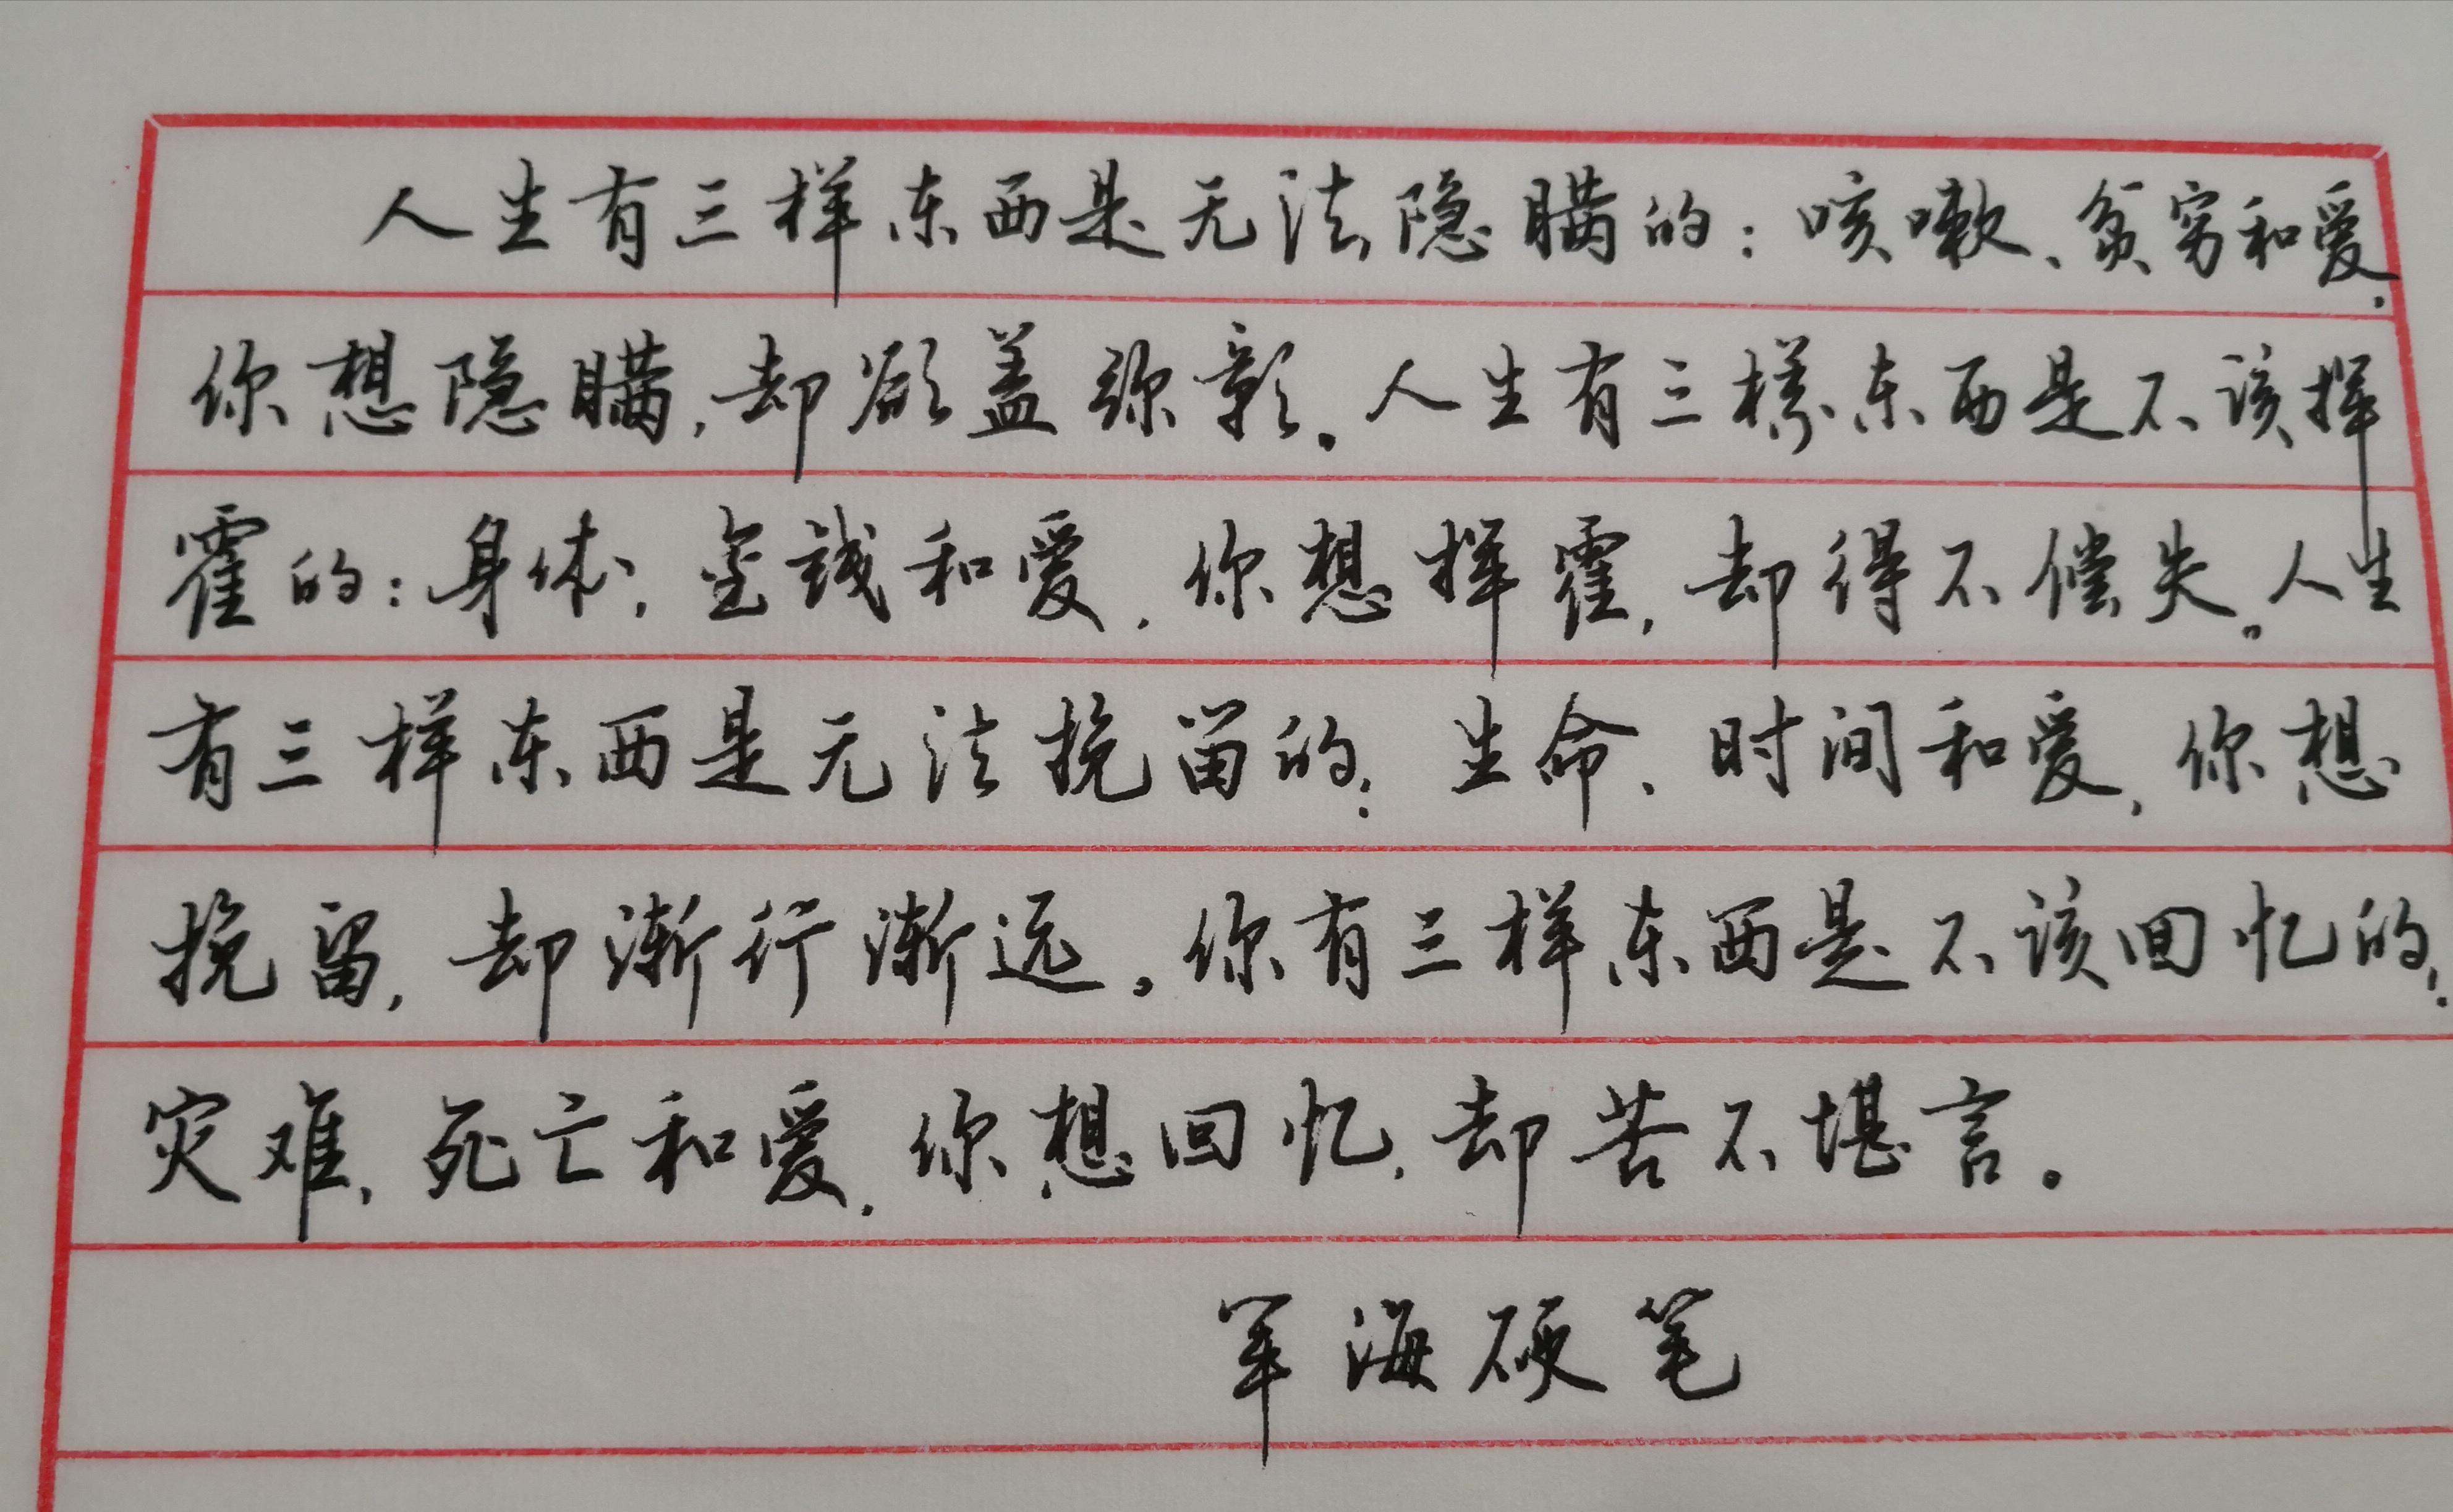 人生有三样东西是无法隐瞒的：咳嗽、贫穷和爱，
你想隐瞒，却欲盖弥彰。人生有三样东西是不该挥
霍的：身体，金钱和爱，你想挥霍，却得不偿失。人生
有三样东西是无法挽留的：生命、时间和爱，你想
挽留，却渐行渐远。你有三样东西是不该回忆的：
灾难，死亡和爱，你想回忆，却苦不堪言。
军海硬笔